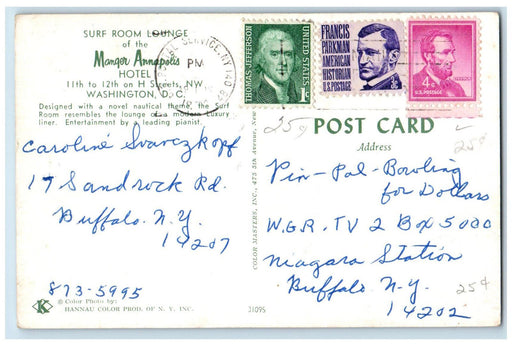 SURF ROOM LOUNGE
of the
Manger Annapolis
HOTEL
11th to 12th on H Streets, NW
WASHINGTON, D. C.
Designed with a novel nautical theme, the Surf
Room resembles the lounge of a modern luxury
liner. Entertainment by a leading pianist.
SERVICE, NY 140
PM
THOMAS JEFFERSON
UNITED STATES
1c
FRANCIS
PARKMAN
AMERICAN
HISTORIAN
U.S. POSTAGE
3c
4c
U.S. POSTAGE
LINCOLN
25¢
POST CARD
Address
25¢
Caroline Svarczkopf
17 Sandrock Rd.
Buffalo N.Y.
14207
873-5995
Pin-Pal-Bowling
for Dollars
W.G.R. TV 2 Box 5000
Niagara Station
Buffalo N-Y.
14202
25¢
COLOR MASTERS, INC., 475 5th Avenue, New
K
© Color Photo by:
HANNAU COLOR PROD. OF N. Y. INC.
31095